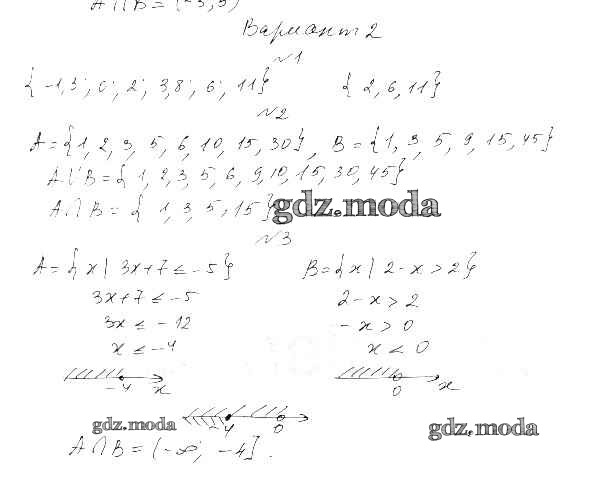 A ∩ B = (-3; 5)
Вариант 2
№1
{-1,3; 0; 2; 3,8; 6; 11} {2, 6, 11}
№2
A = {1, 2, 3, 5, 6, 10, 15, 30}, B = {1, 3, 5, 9, 15, 45}
A ∪ B = {1, 2, 3, 5, 6, 9, 10, 15, 30, 45}
A ∩ B = {1, 3, 5, 15}
gdz.moda
№3
A = {x | 3x+7 ≤ -5} B = {x | 2-x > 2}
3x+7 ≤ -5 2-x > 2
3x ≤ -12 -x > 0
x ≤ -4 x < 0
-4 x 0 x
-4 0
gdz.moda gdz.moda
A ∩ B = (-∞; -4].